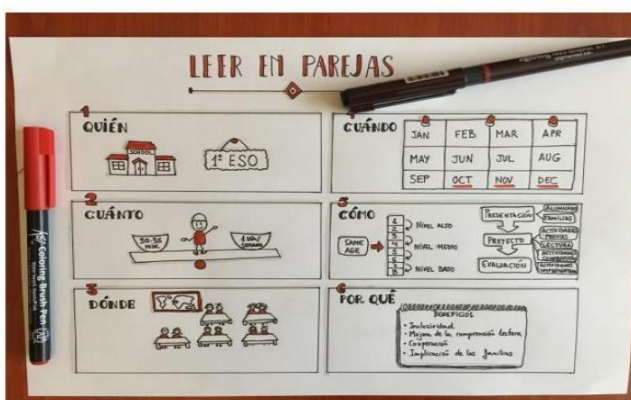 LEER EN PAREJAS
1
QUIÉN
SCHOOL
1º ESO
2
CUÁNTO
50-55
MIN.
1 DÍA/
SEMANA
3
DÓNDE
CUÁNDO
JAN FEB MAR APR
MAY JUN JUL AUG
SEP OCT NOV DEC
5
CÓMO
SAME
AGE
1
2
3
4
5
6
NIVEL ALTO
NIVEL MEDIO
NIVEL BAJO
PRESENTACIÓN
ALUMNADO
FAMILIAS
PROYECTO
ACTIVIDADES
PREVIAS
LECTURA
ACTIVIDADES
EVALUACIÓN
6
POR QUÉ
BENEFICIOS
· Inclusividad
· Mejora de la comprensión lectora
· Cooperación
· Implicación de las familias
Coloring Brush Pen